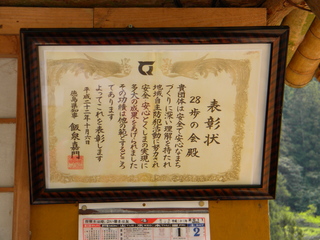 表彰状
28歩の会 殿
貴団体は安全で安心なまち
づくりに深い理解を持たれ
地域自主防犯活動に努力され
安全・安心とくしまの実現に
多大の成果をあげられました
その功績は他の範とするところ
であります
よってこれを表彰します
平成二十二年十月六日
徳島県知事 飯泉嘉門
1
2